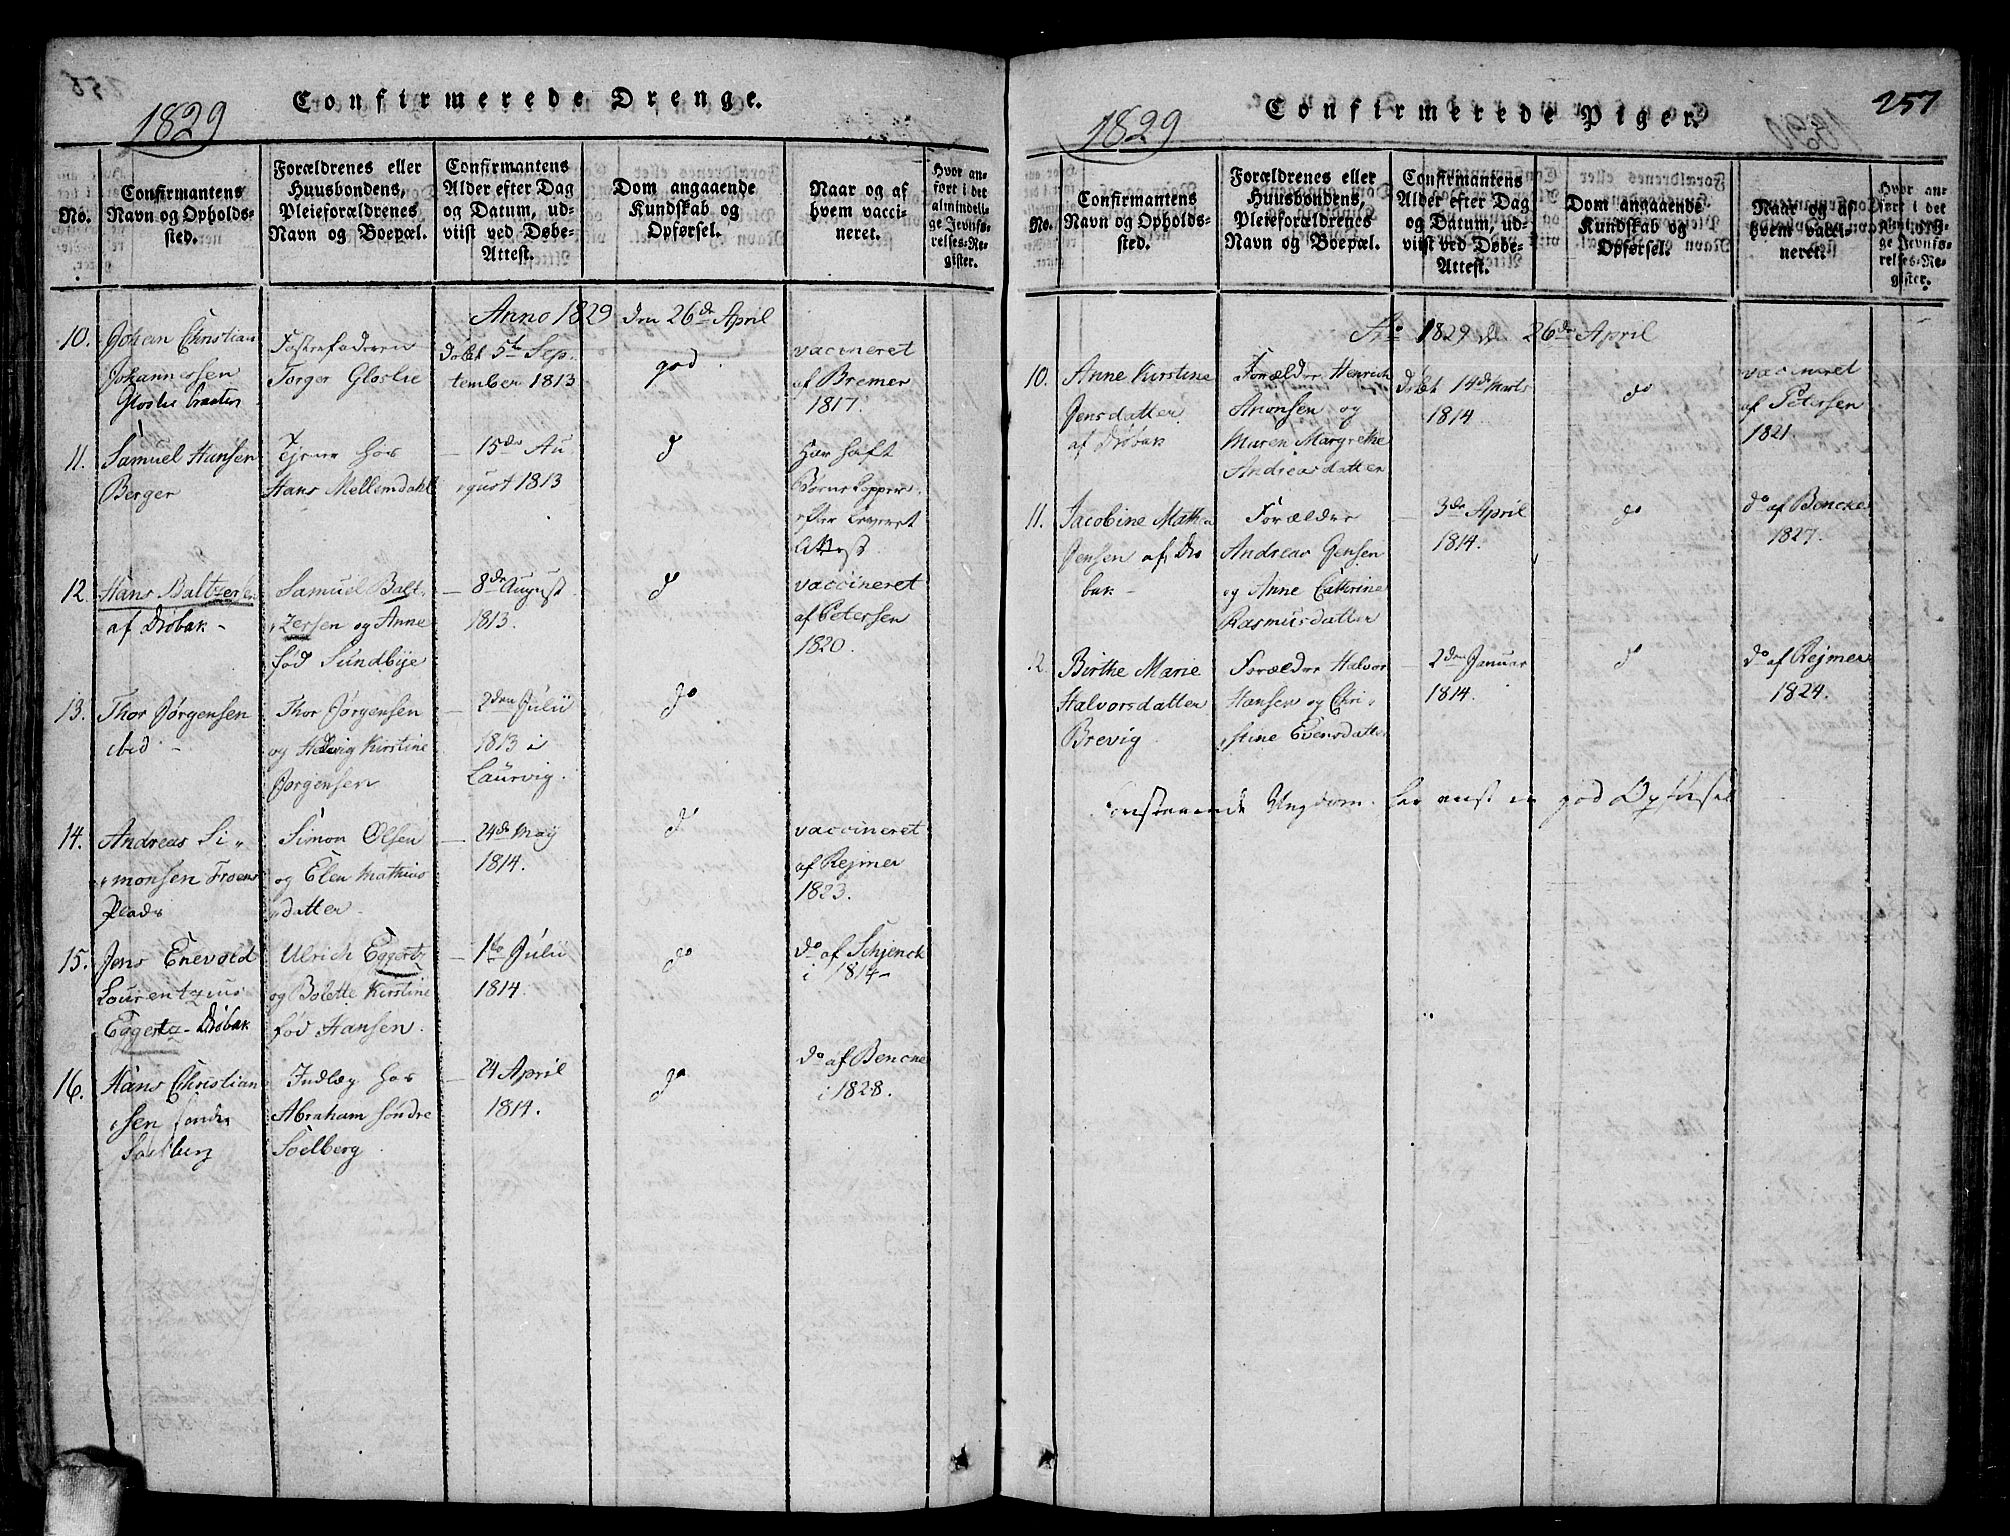 Confirmerede Drenge.
1829
No.
Confirmantens Navn og Opholds-sted.
Forældrenes eller Huusbondens, Pleieforældrenes Navn og Boepæl.
Confirmantens Alder efter Dag og Datum, ud-viist ved Døbe-Attest.
Dom angaaende Kundskab og Opførsel.
Naar og af hvem vacci-neret.
Hvor an-ført i det almindeli-ge Jevnfø-relses-Re-gister.
Anno 1829 den 26de April
10. Johan Christian
Johannessen
Gloslie
Fosterfaderen
Torger Gloslie
Døbt 5t Sep-
tember 1813
god.
vaccineret
af Bremer
1817.
11. Samuel Hansen
Berger
Tjener hos
Hans Mellemdahl
— 15de Au
gust 1813
do
Har haft
Børnekopper
efter leveret
Attest.
12. Hans Baltzersen
af Drøbak -
Samuel Balt-
zersen og Anne
fød Sundbye
— 8de August
1813.
do
vaccineret
af Petersen
1820.
13. Thor Jørgensen
ibid -
Thor Jørgensen
og Hedvig Kirstine
Jørgensen
— 2den Julii
1813 i
Laurvig.
do
14. Andreas Si-
monsen Froens
Plads
Simon Olsen
og Elen Mathias
datter
— 24de May
1814.
do
vaccineret
af Rejmer
1823.
15. Jens Enevold
Laurentzius
Eggertz - Drøbak
Ulrich Eggertz
og Bolette Kirstine
fød Hansen.
— 1te Julii
1814.
do
do af Schjenck
i 1814 -
16. Hans Christian
sen søndre
Soelberg
Indlæg hos
Abraham søndre
Soelberg
— 24 April
1814.
do
do af Bencke
i 1828.
Confirmerede Piger.
257
1829
No.
Confirmantens Navn og Opholds-sted.
Forældrenes eller Huusbondens, Pleieforældrenes Navn og Boepæl.
Confirmantens Alder efter Dag og Datum, ud-viist ved Døbe-Attest.
Dom angaaende Kundskab og Opførsel.
Naar og af hvem vacci-neret.
Hvor an-ført i det almindeli-ge Jevnfø-relses-Re-gister.
Ao 1829 d. 26de April
10. Anne Kirstine
Jensdatter
af Drøbak
Forældre Henrich
Anonsen og
Maren Margrethe
Andreasdatter
Døbt 14de Marts
1814
do
vaccineret
af Petersen
1821.
11. Jacobine Mathea
Jensen af Drø
bak -
Forældre
Andreas Jensen
og Anne Cathrine
Rasmusdatter
— 3de April
1814.
do
do af Bencke
1827.
12. Birthe Marie
Halvorsdatter
Brevig
Forældre Halvor
Hansen og Chri-
stine Evensdatter
— 2den Januar
1814.
do
do af Rejmer
1824.
Ungdom har viist en god Opførsel